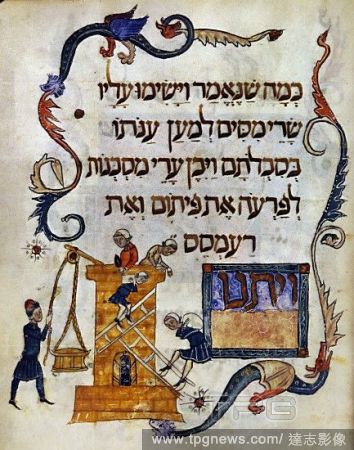 כמה שנאמר וישימו עליו
שרי מסים למען ענתו
בסבלתם ויבן ערי מסכנות
לפרעה את פיתום ואת
רעמסס
ויתנו
TPG
www.tpgnews.com / 達志影像